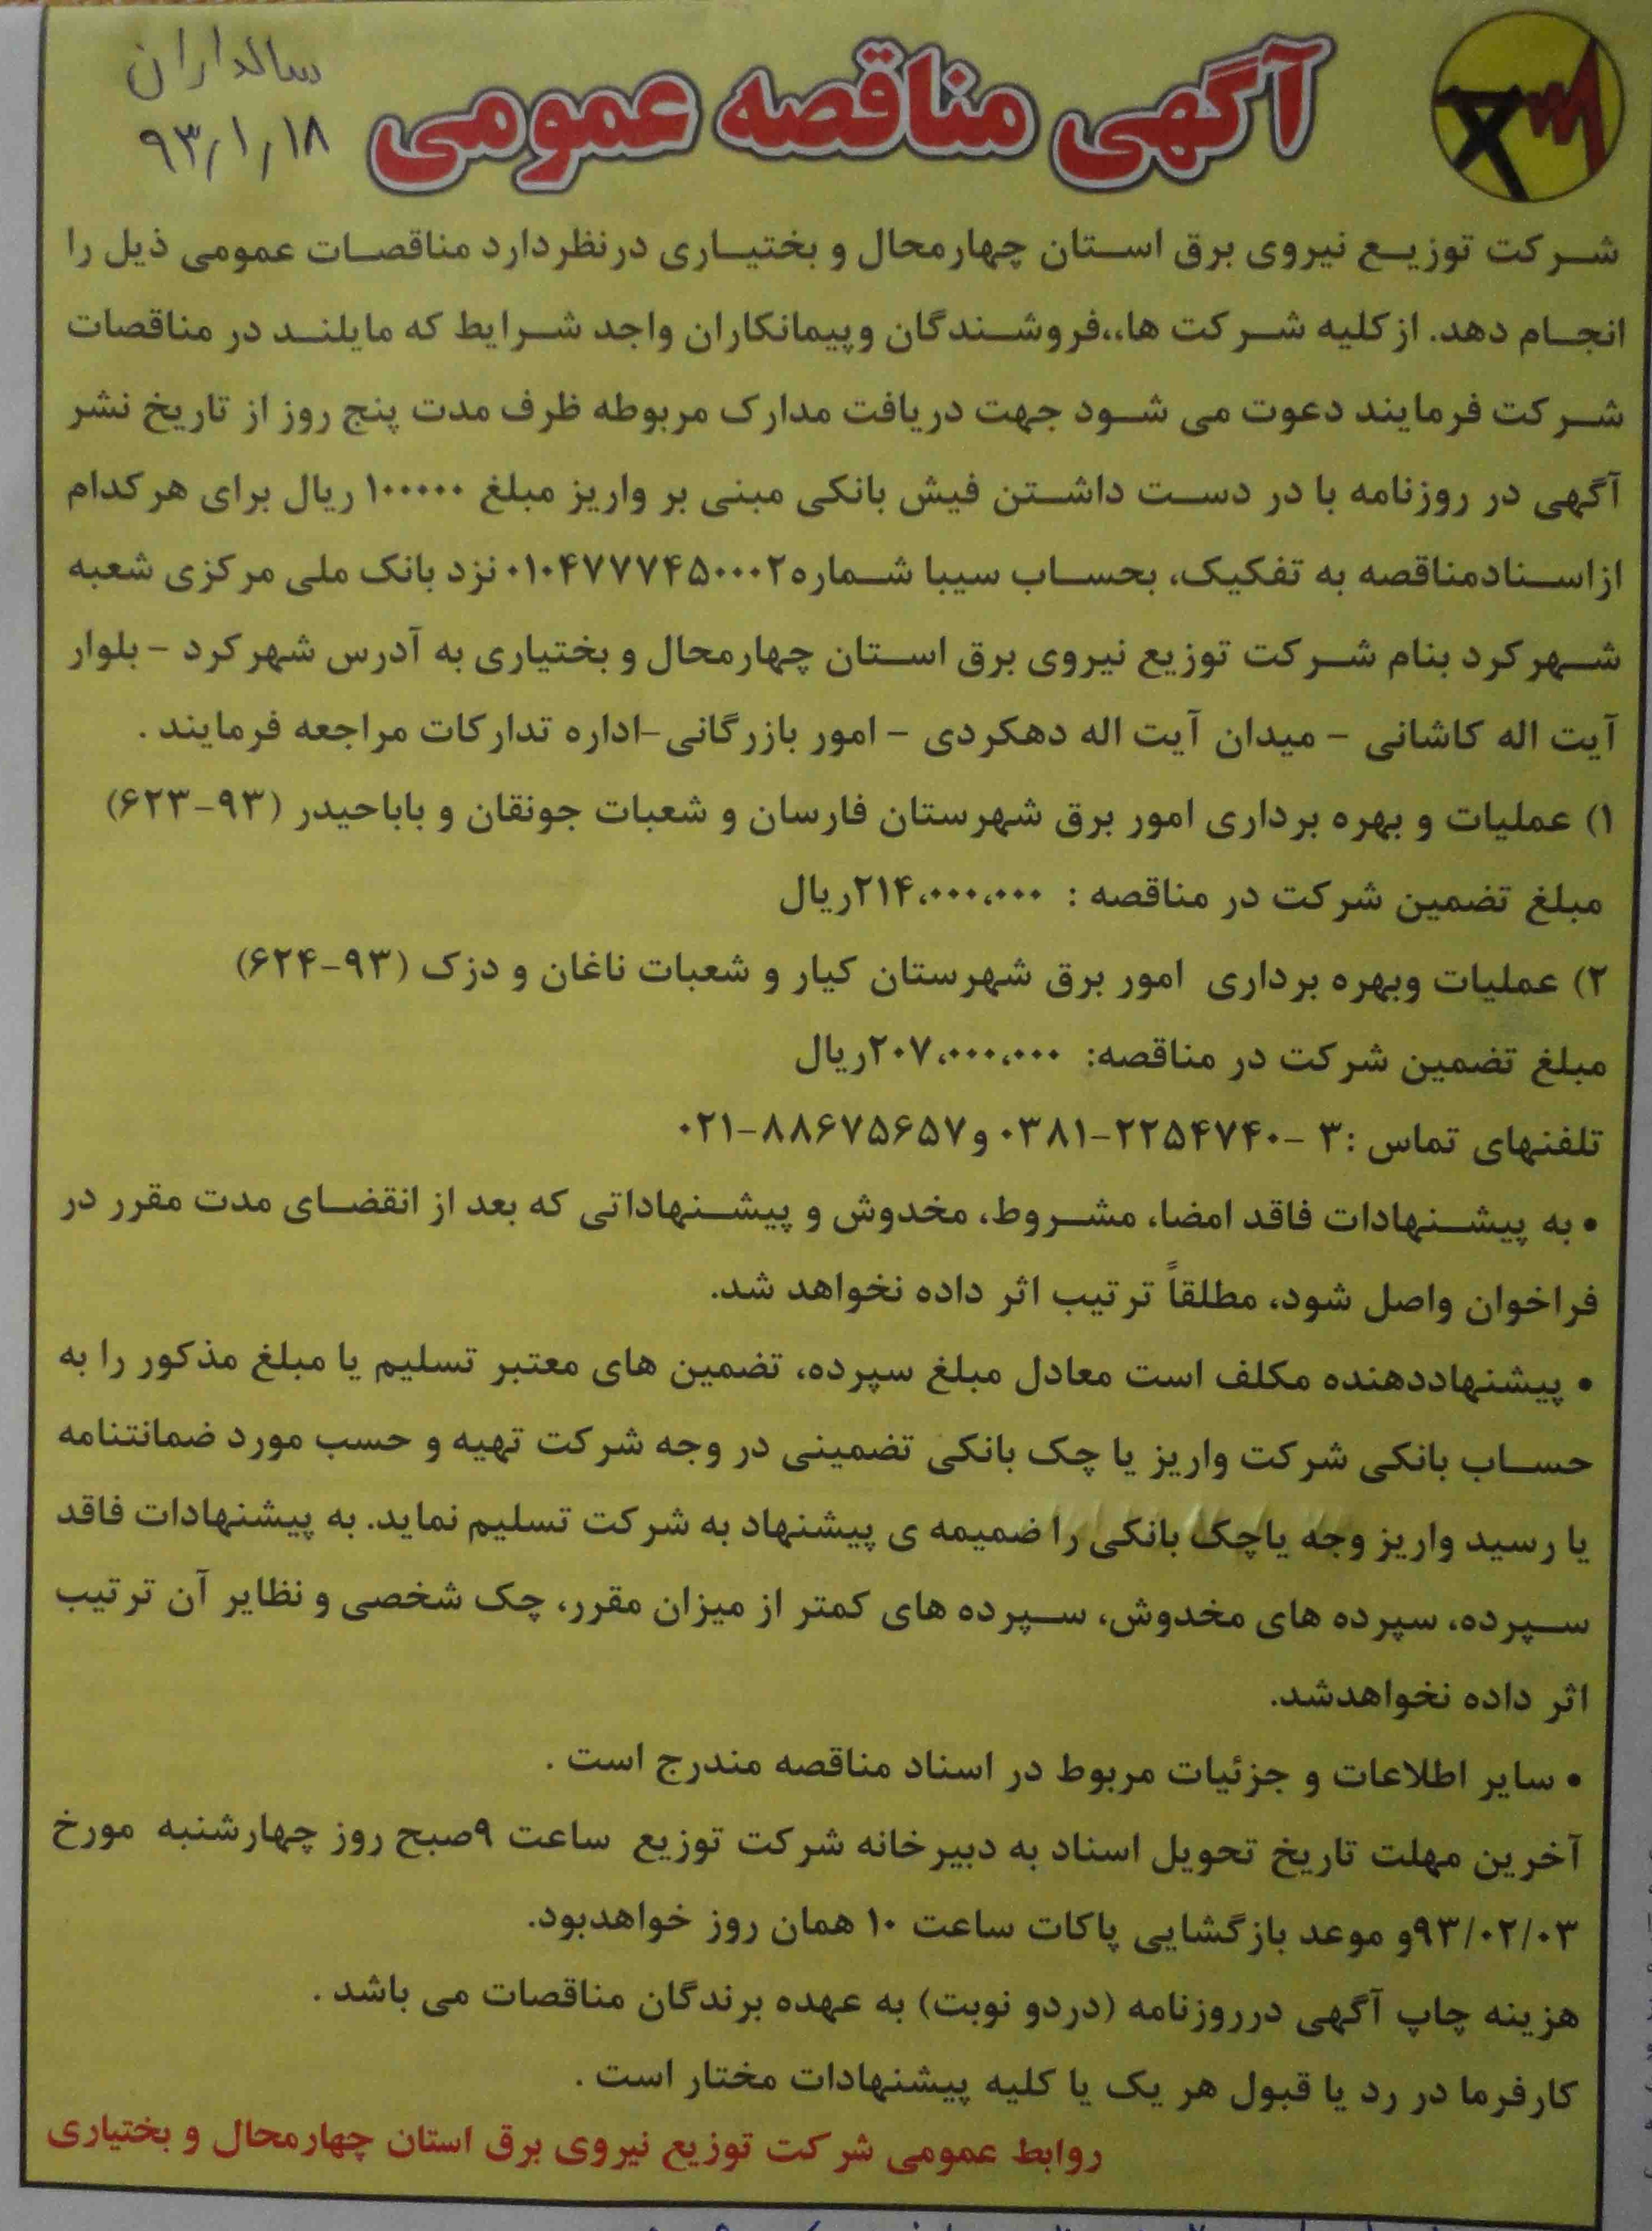 آگهی مناقصه عمومی
۹۳/۱/۱۸
شرکت توزیع نیروی برق استان چهارمحال و بختیاری درنظردارد مناقصات عمومی ذیل را
انجام دهد. ازکلیه شرکت ها،،فروشندگان وپیمانکاران واجد شرایط که مایلند در مناقصات
شرکت فرمایند دعوت می شود جهت دریافت مدارک مربوطه ظرف مدت پنج روز از تاریخ نشر
آگهی در روزنامه با در دست داشتن فیش بانکی مبنی بر واریز مبلغ ۱۰۰۰۰۰ ریال برای هرکدام
ازاسنادمناقصه به تفکیک، بحساب سیبا شماره۰۱۰۴۷۷۷۴۵۰۰۰۲ نزد بانک ملی مرکزی شعبه
شهرکرد بنام شرکت توزیع نیروی برق استان چهارمحال و بختیاری به آدرس شهرکرد – بلوار
آیت اله کاشانی – میدان آیت اله دهکردی – امور بازرگانی–اداره تدارکات مراجعه فرمایند .
۱) عملیات و بهره برداری امور برق شهرستان فارسان و شعبات جونقان و باباحیدر (۹۳–۶۲۳)
مبلغ تضمین شرکت در مناقصه : ۲۱۴،۰۰۰،۰۰۰ریال
۲) عملیات وبهره برداری امور برق شهرستان کیار و شعبات ناغان و دزک (۹۳–۶۲۴)
مبلغ تضمین شرکت در مناقصه: ۲۰۷،۰۰۰،۰۰۰ریال
تلفنهای تماس :۳ –۲۲۵۴۷۴۰–۰۳۸۱ و۸۸۶۷۵۶۵۷–۰۲۱
• به پیشنهادات فاقد امضا، مشروط، مخدوش و پیشنهاداتی که بعد از انقضای مدت مقرر در
فراخوان واصل شود، مطلقاً ترتیب اثر داده نخواهد شد.
• پیشنهاددهنده مکلف است معادل مبلغ سپرده، تضمین های معتبر تسلیم یا مبلغ مذکور را به
حساب بانکی شرکت واریز یا چک بانکی تضمینی در وجه شرکت تهیه و حسب مورد ضمانتنامه
یا رسید واریز وجه یاچک بانکی را ضمیمه ی پیشنهاد به شرکت تسلیم نماید. به پیشنهادات فاقد
سپرده، سپرده های مخدوش، سپرده های کمتر از میزان مقرر، چک شخصی و نظایر آن ترتیب
اثر داده نخواهدشد.
• سایر اطلاعات و جزئیات مربوط در اسناد مناقصه مندرج است .
آخرین مهلت تاریخ تحویل اسناد به دبیرخانه شرکت توزیع ساعت ۹صبح روز چهارشنبه مورخ
۹۳/۰۲/۰۳و موعد بازگشایی پاکات ساعت ۱۰ همان روز خواهدبود.
هزینه چاپ آگهی درروزنامه (دردو نوبت) به عهده برندگان مناقصات می باشد .
کارفرما در رد یا قبول هر یک یا کلیه پیشنهادات مختار است .
روابط عمومی شرکت توزیع نیروی برق استان چهارمحال و بختیاری